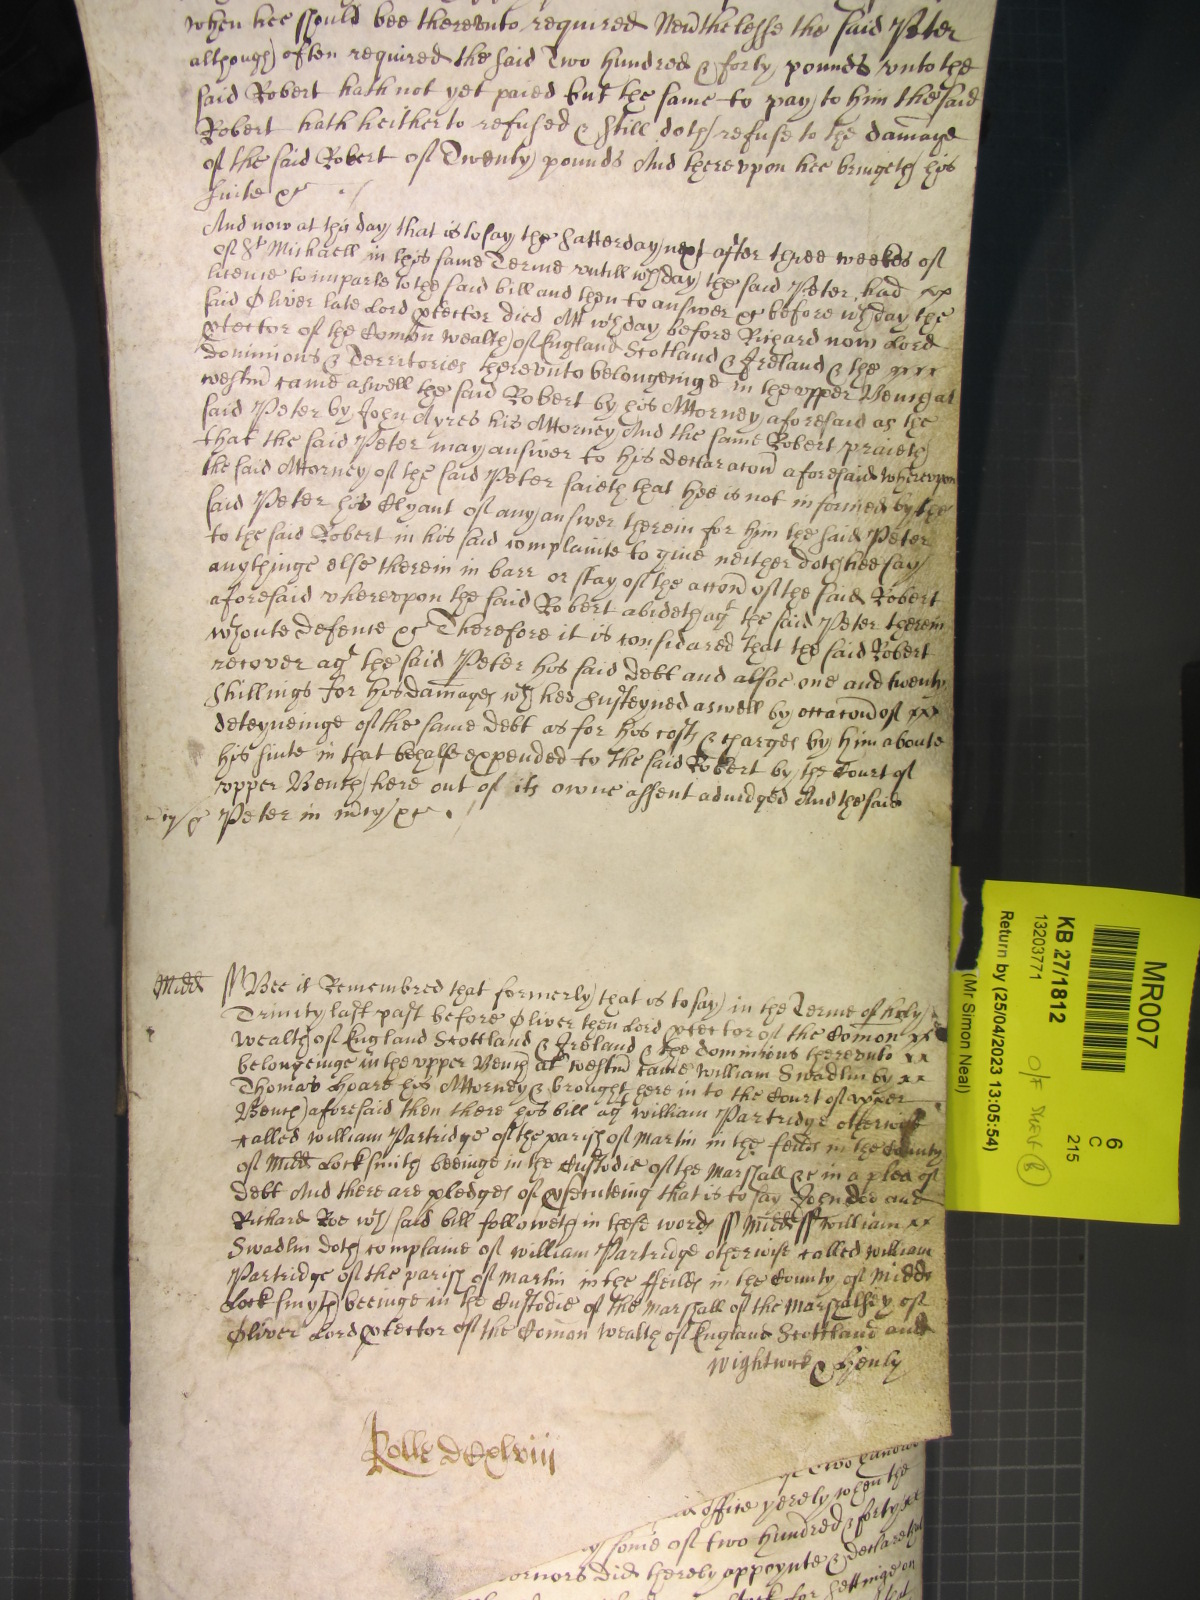 when hee should bee therevnto required Neverthelesse the said Peter
although often required the said Two hundred & forty pounds vnto the
said Robert hath not yet paied but the same to pay to him the said
Robert hath heitherto refused & still doth refuse to the damage
of the said Robert of Twenty pounds And therevpon hee bringeth his
suite &c
And now at this day that is to say the Satterday next after three weekes of
of St Michaell in this same Terme vntill wch day the said Peter had xx
licence to imparle to the said bill and then to answer &c before wch day the
said Oliver late Lord ptector died Att wch day before Richard now Lord
ptector of the Comon wealth of England Scotland & Ireland & the xxx
dominions & Territories therevnto belongeinge in the vpper Bench at
westm came aswell the said Robert by his Attorney aforesaid as the
said Peter by John Ayres his Attorney And the same Robert praieth
that the said Peter may answer to his declaracon aforesaid wherevpon
the said Attorney of the said Peter saieth that hee is not informed by the
said Peter his Clyant of any answer therein for him the said Peter
to the said Robert in his said complainte to give neither doth hee say
anythinge else therein in barr or stay of the accon of the said Robert
aforesaid wherevpon the said Robert abideth agt the said Peter therein
wthoute defense &c Therefore it is considered that the said Robert
recover agt the said Peter his said debt and alsoe one and twenty
shillings for his damages wch hee susteyned aswell by occacon of xx
deteyneinge of the same debt as for his costs & charges by him aboute
his suite in that behalfe expended to the said Robert by the Court of
vpper Bench here out of its owne assent adiudged And the said
Peter in mcy &c
Midd ss Bee it Remembred that formerly that is to say in the Terme of holy
Trinity last past before Oliver then Lord ptector of the Comon xx
wealth of England Scottland & Ireland & the dominions therevnto xx
belongeinge in the vpper Bench at westm came William Swadlin by xx
Thomas Hoare his Attorney & brought here in to the Court of vpper
Bench aforesaid then there his bill agt William Partridge otherwise
called William Partridge of the parish of Martin in the feilds in the County
of Midd Locksmith beeinge in the Custodie of the Marshall &c in a plea of
debt And there are pledges of psecuteing that is to say John doe and
Richard Roe wch said bill followeth in these words ss Midd ss William xx
Swadlin doth complaine of William Partridge otherwise called William
Partridge of the parish of Martin in the ffeilds in the County of Midd
Locksmyth beeinge in the Custodie of the Marshall of the Marshalsey of
Oliver Lord ptector of the Comon wealth of England Scottland and
Wightwick & Henly
Rolle DCxlviii
office yerely when the
some of two hundred & forty
did thereby appoynte & declare that
MR007
6
C
215
KB 27/1812
13203771
O/F
Return by (25/04/2023 13:05:54)
(Mr Simon Neal)